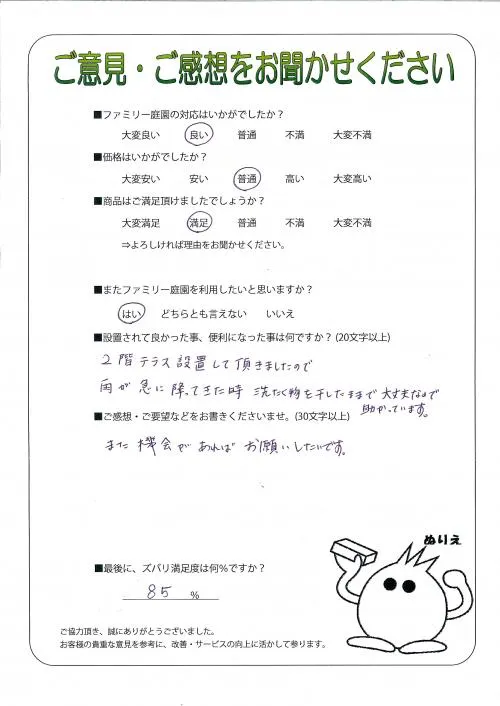 ご意見・ご感想をお聞かせください
■ファミリー庭園の対応はいかがでしたか？
大変良い 良い 普通 不満 大変不満
■価格はいかがでしたか？
大変安い 安い 普通 高い 大変高い
■商品はご満足頂けましたでしょうか？
大変満足 満足 普通 不満 大変不満
⇒よろしければ理由をお聞かせください。
■またファミリー庭園を利用したいと思いますか？
はい どちらとも言えない いいえ
■設置されて良かった事、便利になった事は何ですか？(20文字以上)
2階テラス設置して頂きましたので
雨が急に降ってきた時 洗たく物を干したままで大丈夫なので
助かっています。
■ご感想・ご要望などをお書きくださいませ。(30文字以上)
また機会があれば お願いしたいです。
ぬりえ
■最後に、ズバリ満足度は何％ですか？
85 ％
ご協力頂き、誠にありがとうございました。
お客様の貴重な意見を参考に、改善・サービスの向上に活かして参ります。